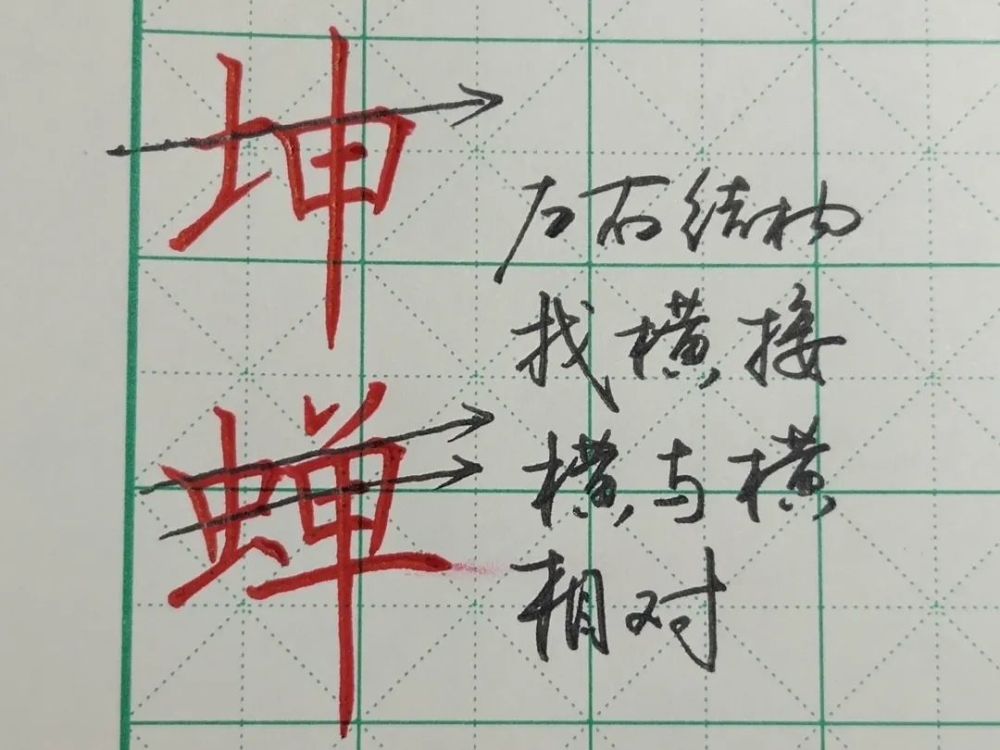 坤
左右结构
找横接
蝉
横与横
相对